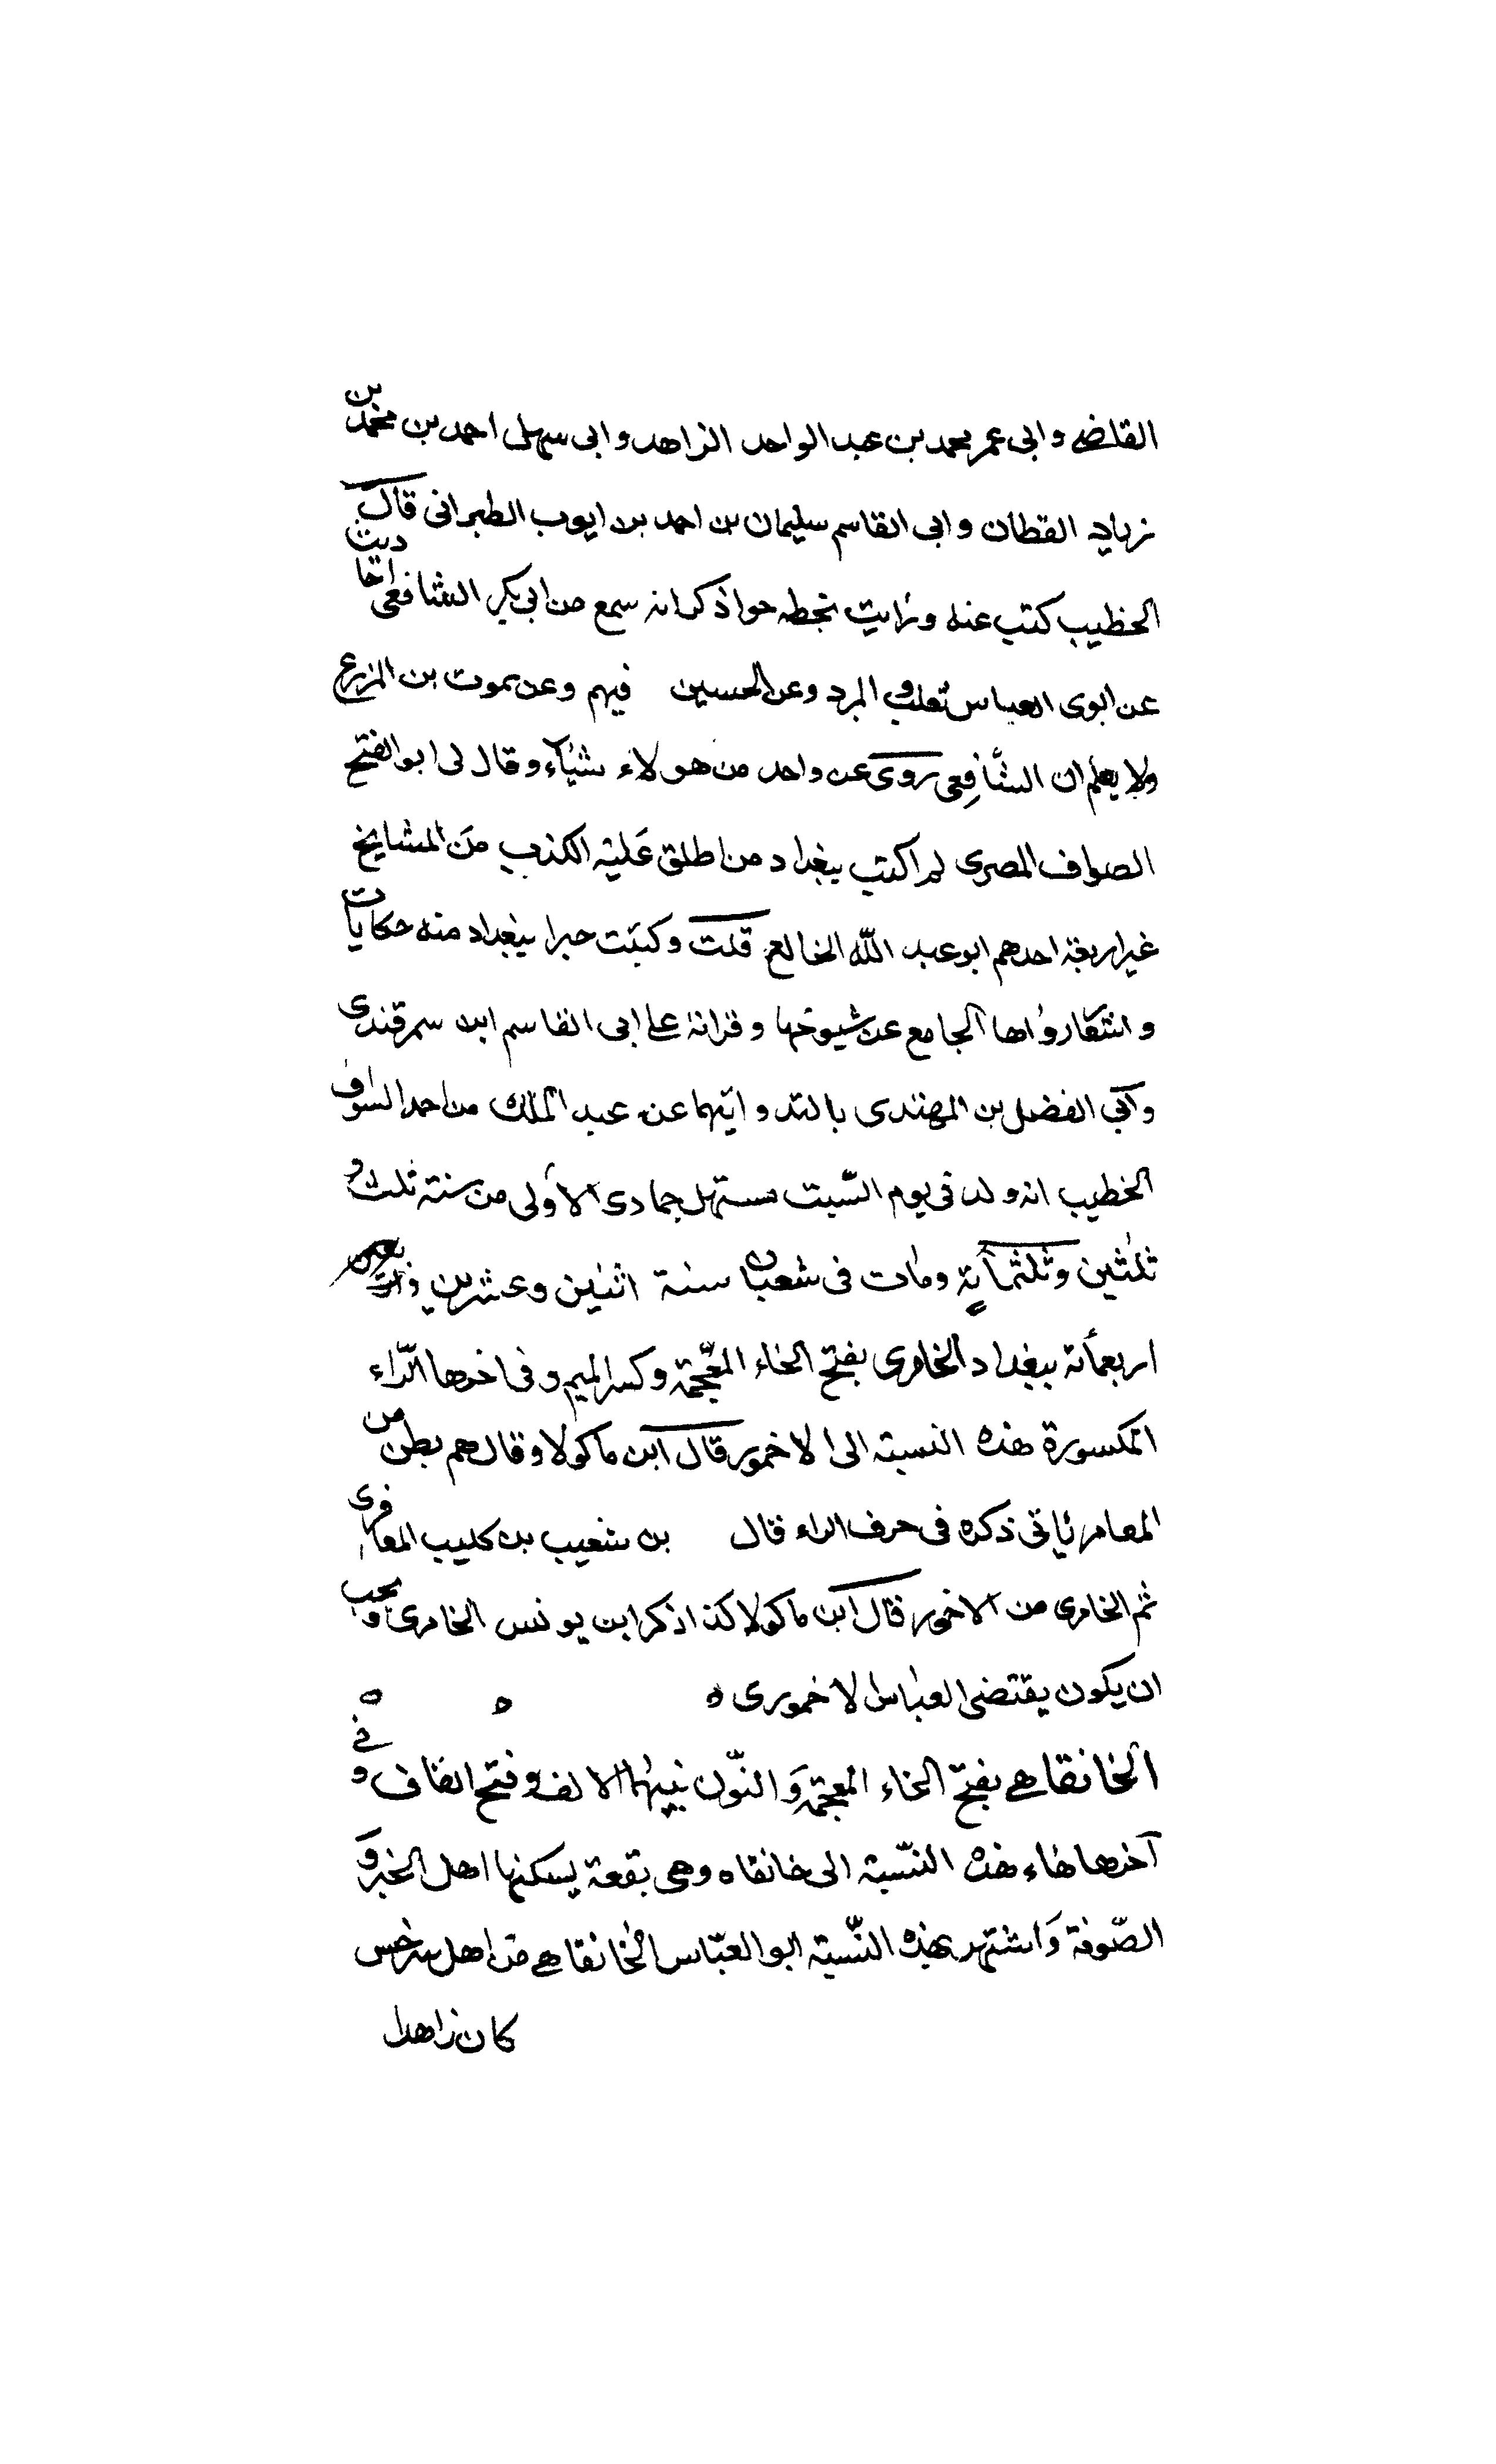 القاضي و ابى عمر محمد بن عبد الواحد الزاهد و ابى سهل احمد بن محمد بن
زياد القطان و ابى القاسم سليمان بن احمد بن ايوب الطبرانى قال
الخطيب كتب عنه و رايت بخطه جوا ذكر انه سمع من ابى بكر الشافعى احاديث
عن ابوى العباس ثعلب و المبرد و عن الحسين فيهم و عن يموت بن المزرع
ولا يعلم ان الشافعى روى عن واحد من هولاء شياء و قال لى ابو الفتح
الصواف المصرى لم اكتب ببغداد من اطلق عليه الكذب من المشايخ
غير اربعة احدهم ابو عبد الله الخالع قلت و كتبت حبرا ببغداد منه حكايات
و اشعار رواها الجامع عن شيوخها و قرانه على ابى القاسم ابن سمرقندى
و ابى الفضل بن المهتدى عن عبد الملك من احمد السواف
الخطيب انه ولد فى يوم السّبت مستهل جمادى الاولى من سنة ثلث و
ثلثين و ثلثمأية و مات فى شعبان سنة اثنين و عشرين
اربعمأئة ببغداد الخامرى بفتح الخاء المعّجمة و كسر الميم و فى اخرها الرّاء
المكسورة هذه النسبة الى الاخمور قال ابن ماكولا و قال هم بطن من
المعامر ياتى ذكره فى حرف الراء قال بن شعيب بن كليب المعافرى
ثم الخامرى من الاخمور قال ابن ماكولا كذا ذكر ابن يونس الخامرى و يجب
ان يكون يقتضى العباس الاخمورى ه ه ه
الخانقاهي بفتح الخاء المعجمة و النّون بينهما الالف و فتح القاف و في
آخرها هاء هذه النّسبة الى خانقاه و هى بقعة يسكنها اهل الخير و
الصّوفة و اشتهر بهذه النّسبة ابو العبّاس الخانقاهي من اهل سرخس
كان زاهدا